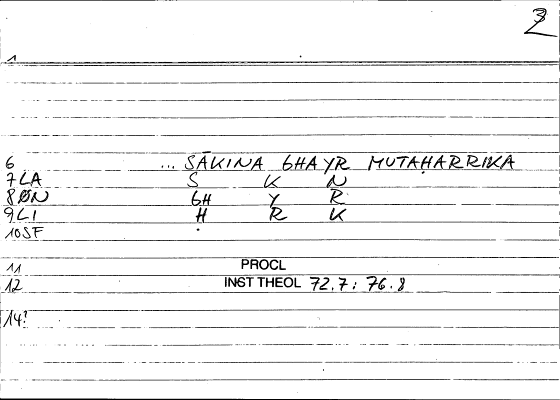 3
1
6 ... SĀKINA GHAYR MUTAḤARRIKA
7LA S K N
8ØN GH Y R
9LI Ḥ R K
10SF
11 PROCL
12 INST THEOL 72.7; 76.8
14?